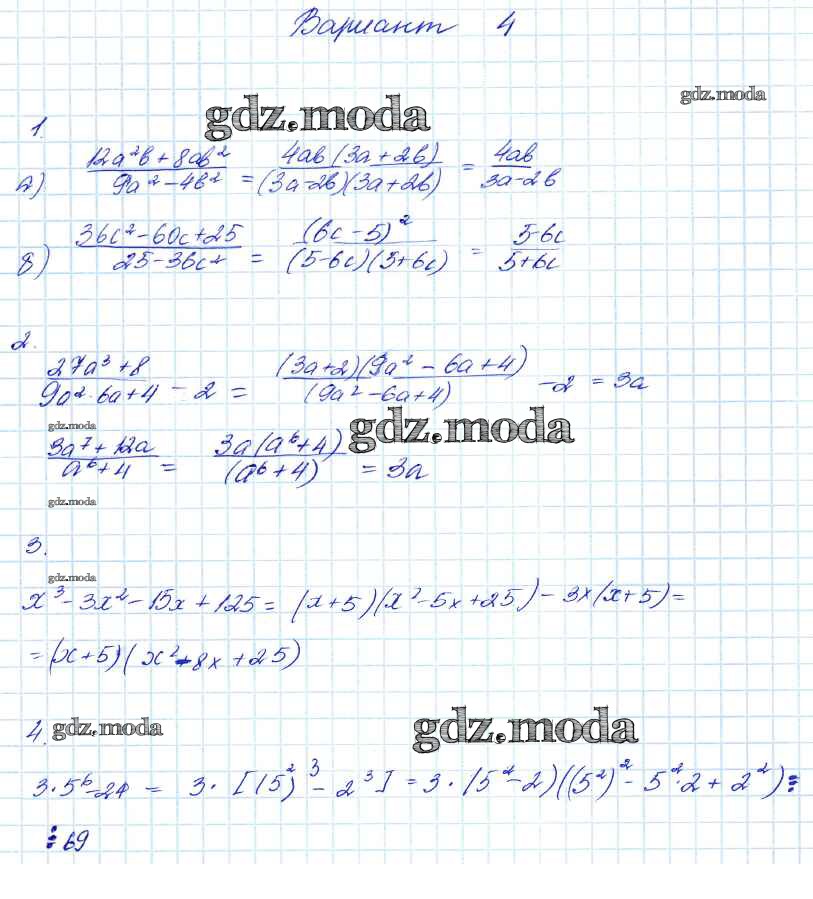 Вариант 4
gdz.moda
gdz.moda
1.
а) (12a²b + 8ab²)/(9a² - 4b²) = (4ab(3a + 2b))/((3a - 2b)(3a + 2b)) = 4ab/(3a - 2b)
б) (36c² - 60c + 25)/(25 - 36c²) = (6c - 5)²/((5 - 6c)(5 + 6c)) = (5 - 6c)/(5 + 6c)
2.
(27a³ + 8)/(9a² - 6a + 4) - 2 = ((3a + 2)(9a² - 6a + 4))/(9a² - 6a + 4) - 2 = 3a
gdz.moda
gdz.moda
(3a⁷ + 12a)/(a⁶ + 4) = (3a(a⁶ + 4))/(a⁶ + 4) = 3a
gdz.moda
3.
gdz.moda
x³ - 3x² - 15x + 125 = (x + 5)(x² - 5x + 25) - 3x(x + 5) =
= (x + 5)(x² - 8x + 25)
4.
gdz.moda
gdz.moda
3 · 5⁶ - 24 = 3 · [(5²)³ - 2³] = 3 · (5² - 2)((5²)² - 5² · 2 + 2²) ⋮
⋮ 69